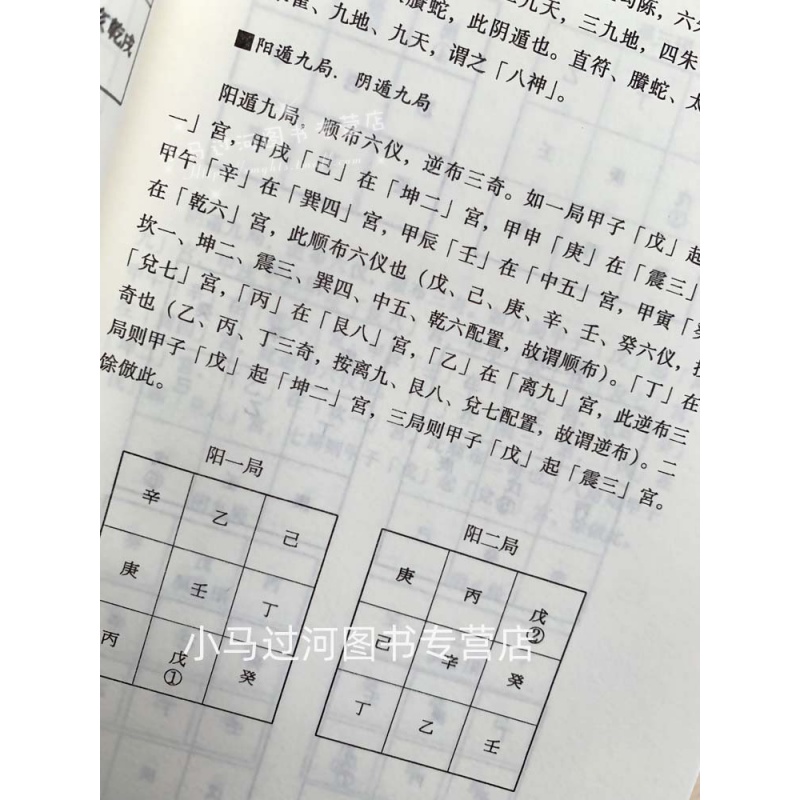 亥乾戌
九天，三九地，四朱
螣蛇，此阴遁也。直符、螣蛇、太
雀、九地、九天，谓之「八神」。
阳遁九局．阴遁九局
阳遁九局，顺布六仪，逆布三奇。如一局甲子「戊」起
一」宮，甲戌「己」在「坤二」宮，甲申「庚」在「震三」
甲午「辛」在「巽四」宮，甲辰「壬」在「中五」宮，甲寅「癸
在「乾六」宮，此顺布六仪也（戊、己、庚、辛、壬、癸六仪，按
坎一、坤二、震三、巽四、中五、乾六配置，故谓顺布）。「丁」在
「兌七」宮，「丙」在「艮八」宮，「乙」在「离九」宮，此逆布三
奇也（乙、丙、丁三奇，按离九、艮八、兌七配置，故谓逆布）。二
局则甲子「戊」起「坤二」宮，三局则甲子「戊」起「震三」宮。
馀倣此。
阳一局
辛 乙 己
庚 壬 丁
丙 戊① 癸
阳二局
庚 丙 戊②
己 辛 癸
丁 乙 壬
小马过河图书专营店
小马过河图书专营店